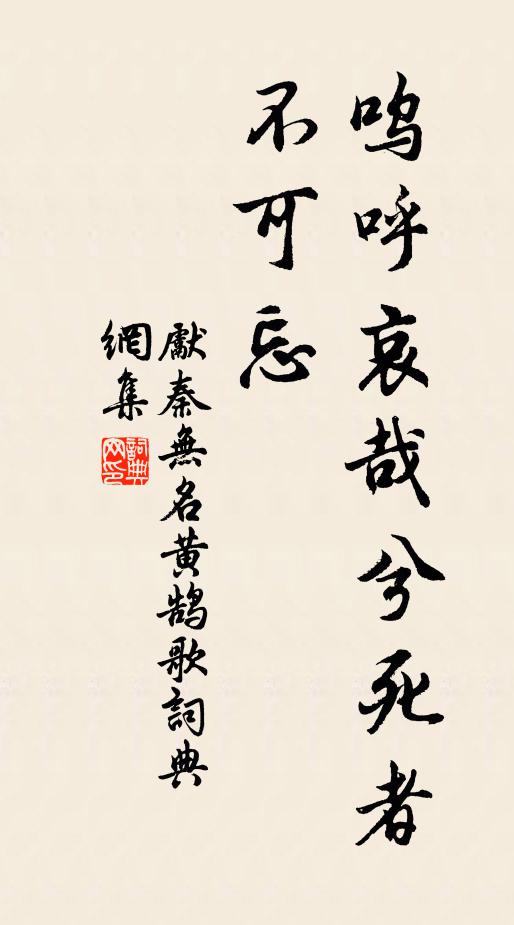 嗚呼哀哉兮死者
不可忘
獻秦無名黃鵠歌詞典
網集
詞典
网印